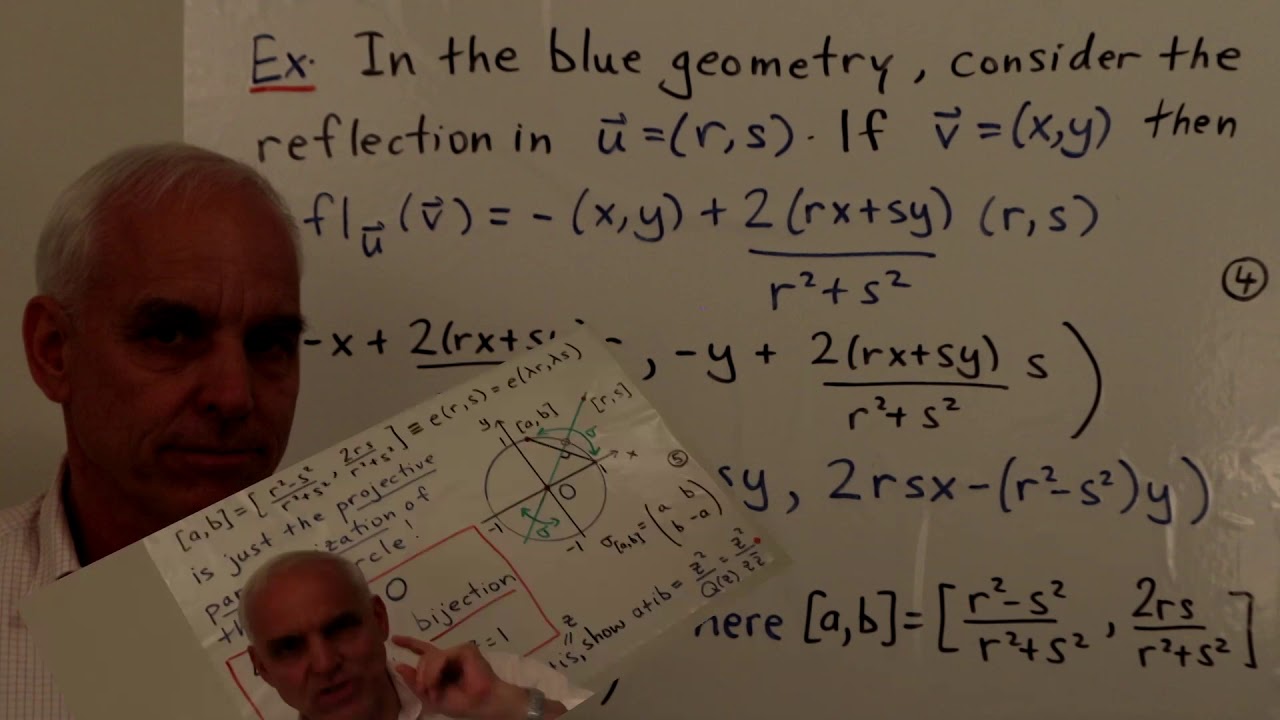 Ex. In the blue geometry, consider the
reflection in u⃗ = (r,s). If v⃗ = (x,y) then
fl_u⃗ (v⃗) = - (x,y) + 2(rx+sy)/(r²+s²) (r,s)
④
-x + 2(rx+s , -y + 2(rx+sy)/(r²+s²) s )
sy, 2rsx-(r²-s²)y)
here [a,b] = [ (r²-s²)/(r²+s²) , 2rs/(r²+s²) ]
[a,b] = [ (r²-s²)/(r²+s²) , 2rs/(r²+s²) ] ≡ e(r,s) = e(λr,λs)
is just the projective
ization of
rcle!
y
1
[a,b]
[r,s]
σ
x
1
O
-1
σ
-1
⑤
σ[a,b] = ( a b
b -a )
bijection
z
=
is, show a+ib = z²/Q(z) = z²/zz̄